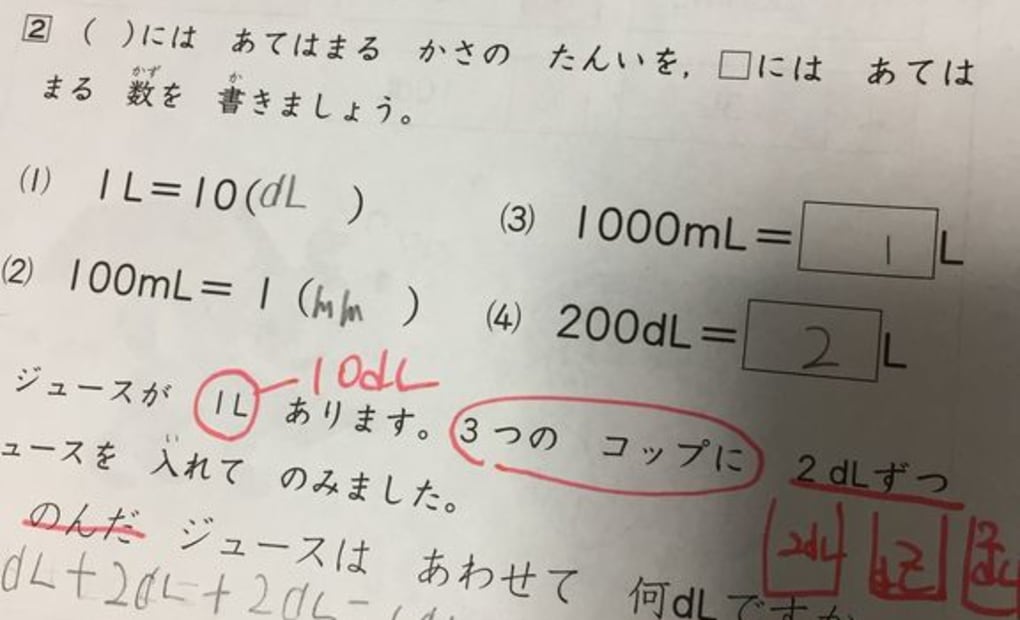 2 ( )には あてはまる かさの たんいを, □には あては
まる 数を 書きましょう。
(1) 1L=10(dL )
(2) 100mL=1(mm )
(3) 1000mL=1L
(4) 200dL=2L
10dL
ジュースが 1L あります。3つの コップに 2dLずつ
ュースを 入れて のみました。
のんだ ジュースは あわせて 何dLですか
2dL
dL+2dL+2dL=